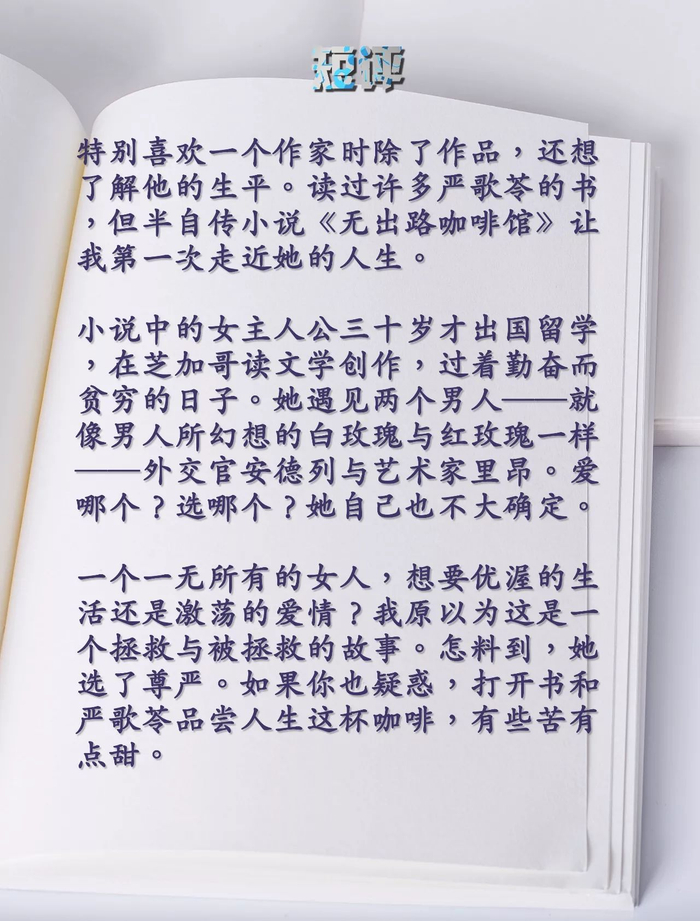 短评
特别喜欢一个作家时除了作品，还想
了解他的生平。读过许多严歌苓的书
，但半自传小说《无出路咖啡馆》让
我第一次走近她的人生。
小说中的女主人公三十岁才出国留学
，在芝加哥读文学创作，过着勤奋而
贫穷的日子。她遇见两个男人——就
像男人所幻想的白玫瑰与红玫瑰一样
——外交官安德列与艺术家里昂。爱
哪个？选哪个？她自己也不大确定。
一个一无所有的女人，想要优渥的生
活还是激荡的爱情？我原以为这是一
个拯救与被拯救的故事。怎料到，她
选了尊严。如果你也疑惑，打开书和
严歌苓品尝人生这杯咖啡，有些苦有
点甜。